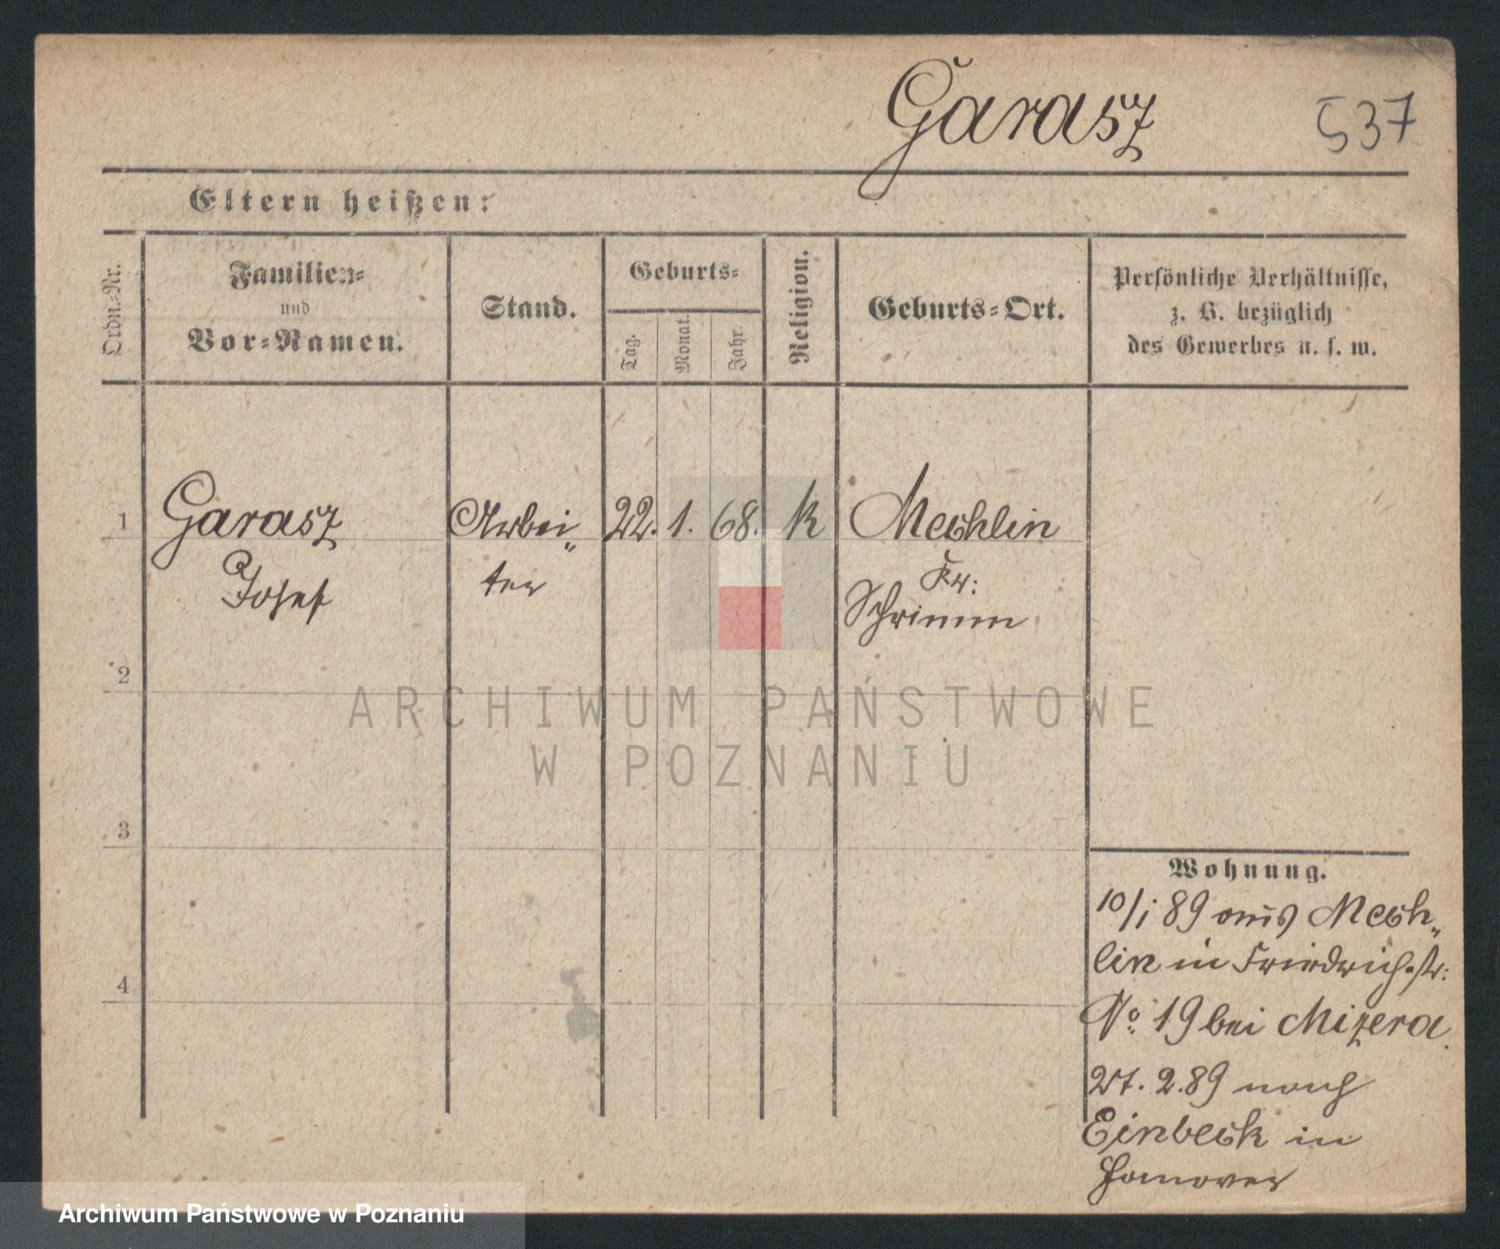 Garasz
537
Eltern heißen:
Ordn.-Nr.
Familien-
und
Vor-Namen.
Stand.
Geburts-
Tag.
Monat.
Jahr.
Religion.
Geburts-Ort.
Persönliche Verhältnisse,
z. B. bezüglich
des Gewerbes u. s. w.
1
Garasz
Josef
Arbei„
ter
22. 1. 68.
k
Mechlin
Kr:
Schrimm
2
3
4
ARCHIWUM PAŃSTWOWE
W POZNANIU
Wohnung.
10/1 89 aus Mech„
lin in Friedrichstr:
No. 19 bei Mizera.
2.89 nach
Einbeck in
Hanover
Archiwum Państwowe w Poznaniu